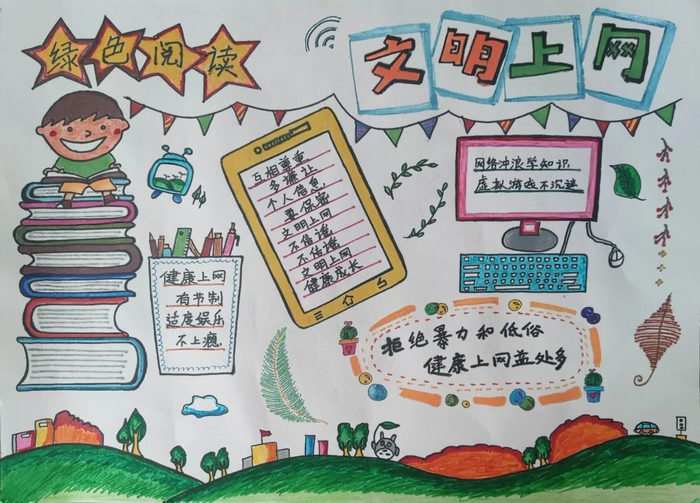 绿色阅读
文明上网
互相尊重
多谦让
个人信息
要保密
文明上网
不信谣
不传谣
文明上网
健康成长
网络冲浪学知识
虚拟游戏不沉迷
健康上网
有节制
适度娱乐
不上瘾
拒绝暴力和低俗
健康上网益处多